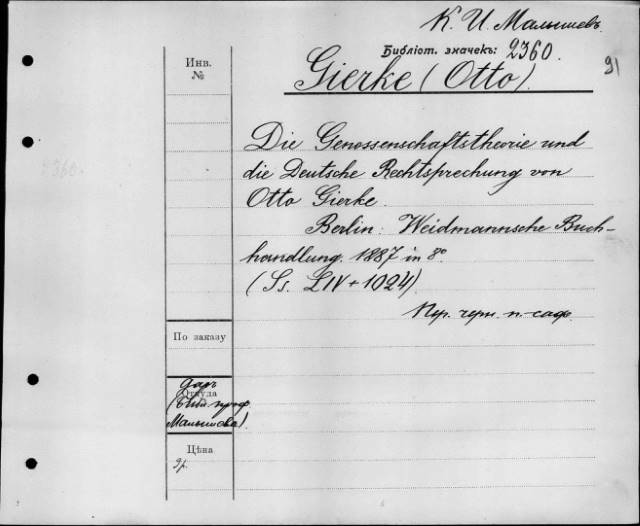 К. И. Малышевъ.
Библіот. значекъ: 2360.
91
Инв.
№
Gierke (Otto).
Die Genossenschaftstheorie und
die Deutsche Rechtsprechung von
Otto Gierke.
Berlin: Weidmannsche Buch-
handlung. 1887 in 8°
(Ss. LIV + 1024).
Пер. черн. п. саф.
По заказу
Откуда
даръ
проф.
Малышева).
Цѣна
9р.